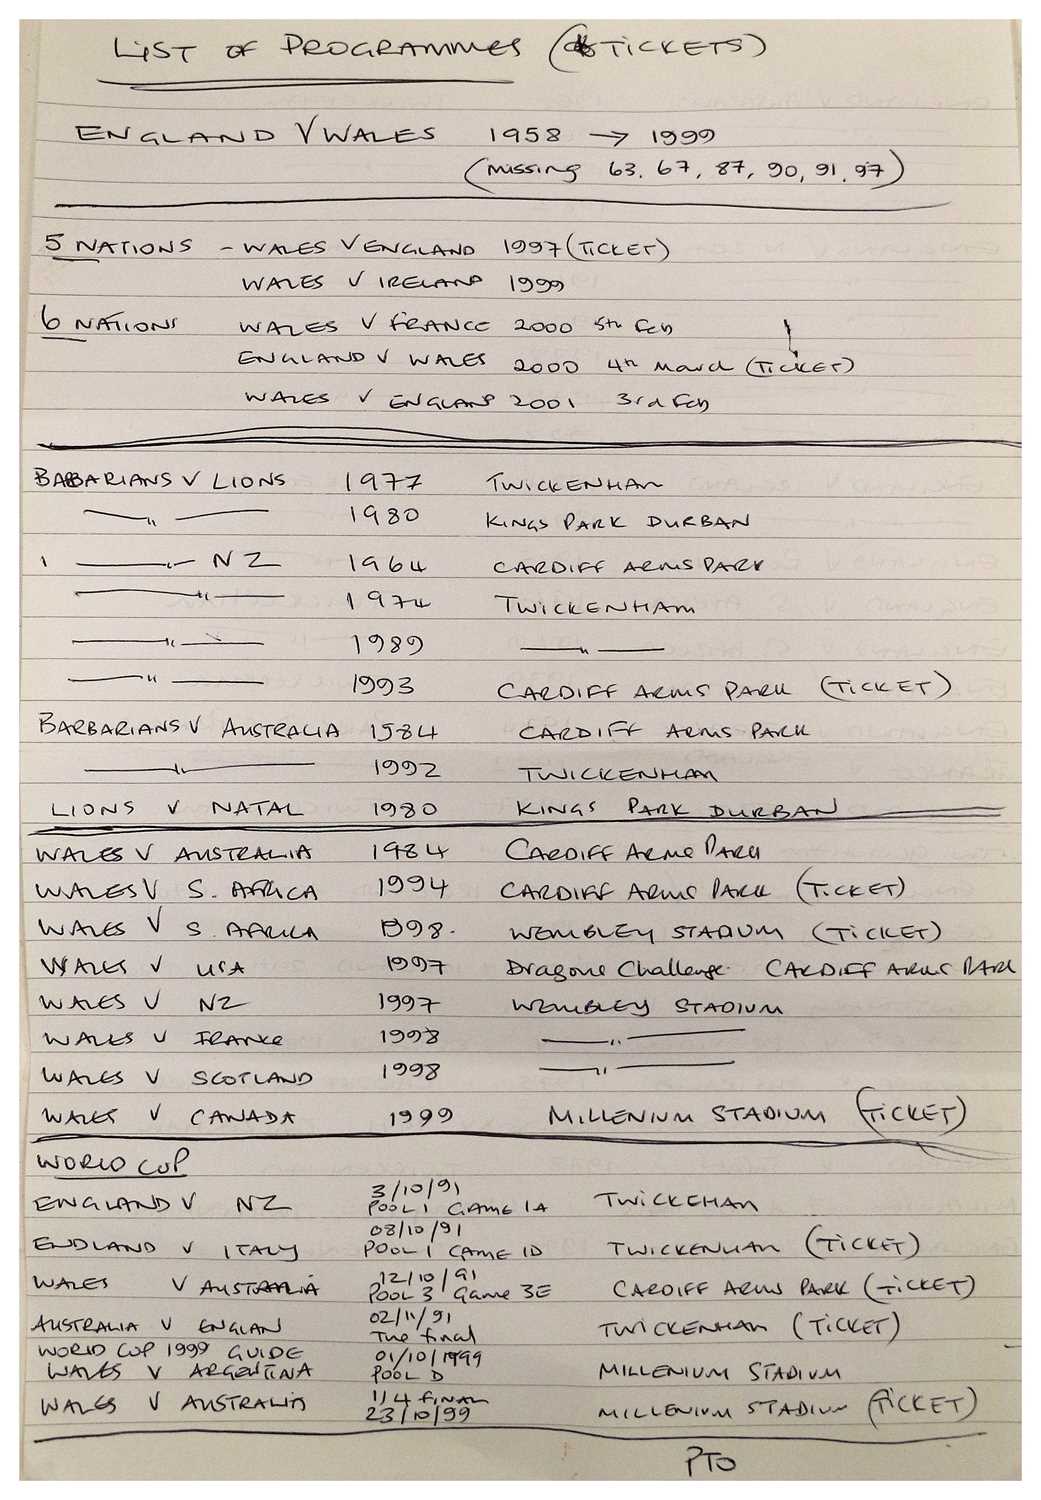 LIST OF PROGRAMMES (& TICKETS)
ENGLAND V WALES 1958 → 1999
(missing 63, 67, 87, 90, 91, 97)
5 NATIONS - WALES V ENGLAND 1997 (TICKET)
WALES V IRELAND 1999
6 NATIONS WALES V FRANCE 2000 5th Feb
ENGLAND V WALES 2000 4th March (TICKET)
WALES V ENGLAND 2001 3rd Feb
BARBARIANS V LIONS 1977 TWICKENHAM
—— " —— 1980 KINGS PARK DURBAN
—— " — NZ 1964 CARDIFF ARMS PARK
—— " —— 1974 TWICKENHAM
—— " —— 1989 —— " ——
—— " —— 1993 CARDIFF ARMS PARK (TICKET)
BARBARIANS V AUSTRALIA 1984 CARDIFF ARMS PARK
—— " —— 1992 TWICKENHAM
LIONS V NATAL 1980 KINGS PARK DURBAN
WALES V AUSTRALIA 1984 CARDIFF ARMS PARK
WALES V S. AFRICA 1994 CARDIFF ARMS PARK (TICKET)
WALES V S. AFRICA 1998. WEMBLEY STADIUM (TICKET)
WALES V USA 1997 Dragons Challenge. CARDIFF ARMS PARK
WALES V NZ 1997 WEMBLEY STADIUM
WALES V FRANCE 1998 —— " ——
WALES V SCOTLAND 1998 —— " ——
WALES V CANADA 1999 MILLENIUM STADIUM (TICKET)
WORLD CUP
3/10/91
ENGLAND V NZ POOL 1 GAME 1A TWICKEHAM
08/10/91
ENDLAND V ITALY POOL 1 GAME 1D TWICKENHAM (TICKET)
12/10/91
WALES V AUSTRALIA POOL 3 Game 3E CARDIFF ARMS PARK (TICKET)
02/11/91
AUSTRALIA V ENGLAN The final TWICKENHAM (TICKET)
WORLD CUP 1999 GUIDE 01/10/1999
WALES V ARGENTINA POOL D MILLENIUM STADIUM
1/4 FINAL
WALES V AUSTRALIA 23/10/99 MILLENIUM STADIUM (TICKET)
PTO